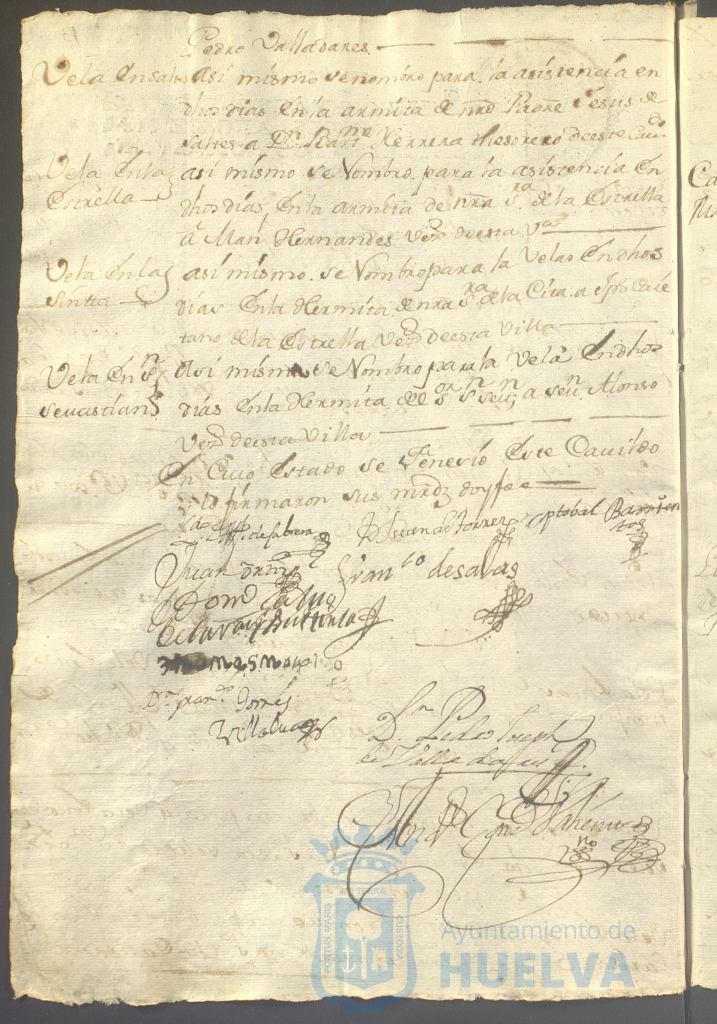 Pedro Valladares
Vela En Sal Asi mismo se nombro para la asistencia en
dhos dias En la armita de nro Padre Jesus de
saltes a Dn Barme Herrera thesorero de este
Vela En la asi mismo se Nombro para la asistencia En
Estrella dhos dias, En la armita de nra sra de la Estrella
a Man Hernandes Vezo de esta Va
Vela En la asi mismo se Nombro para la Vela En dhos
Sintta dias En la Hermita de nra sra de la Cita a
tano de la Estrella Vezo de esta Villa
Vela En Sn Asi mismo se Nombro para la Vela En dhos
sevastian dias En la Hermita del sor Sn Seun, a seun Alonso
Vezo de esta Villa
En Cuio Estado se Fenesio Este Cavildo
lo firmaron sus mrdz doy fee
de Cabrera Dn Juan de Torres Xptobal Barrien
tos
Juan Ortiz Franco de salas
Domo
Thomas
Dn Franco Gomes
Villalva
Dn Pedro Joseph
de Villa
Ayuntamiento de
HUELVA
PORTUS MARIS
ET TERRÆ
CUSTODIA